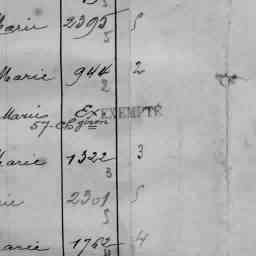 Marie 2395 5
5
Marie 944 2
2
Marie Ex EXEMPTÉ
57-Ch
Marie 1322 3
3
2301 5
5
Marie 1762 4